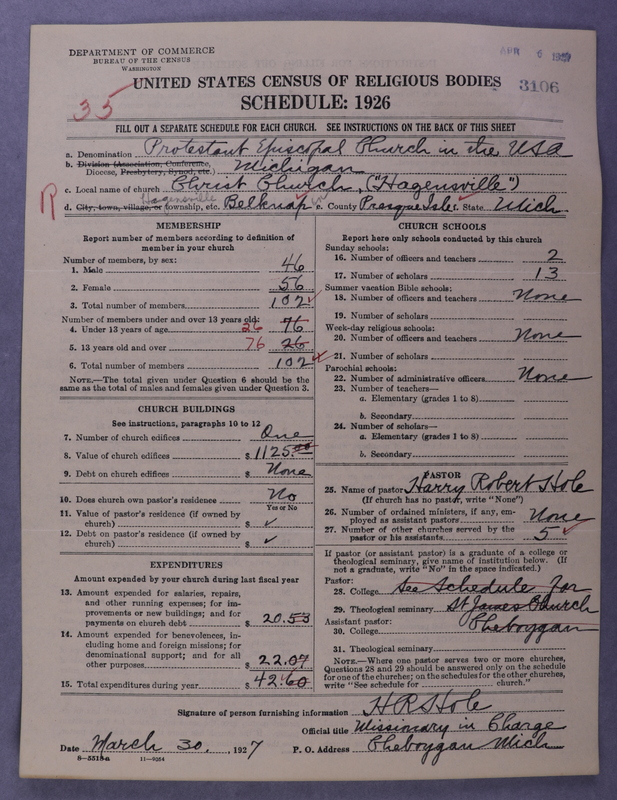 DEPARTMENT OF COMMERCE
BUREAU OF THE CENSUS
WASHINGTON
APR 6 1927
3106
35
UNITED STATES CENSUS OF RELIGIOUS BODIES
SCHEDULE: 1926
FILL OUT A SEPARATE SCHEDULE FOR EACH CHURCH. SEE INSTRUCTIONS ON THE BACK OF THIS SHEET
a. Denomination Protestant Episcopal Church in the USA
b. Division (Association, Conference,
Diocese, Presbytery, Synod, etc.) Michigan
c. Local name of church Christ Church, ("Hagensville")
R
Hagensville
d. City, town, village, or township, etc. Belknap e. County Presque Isle f. State Mich
MEMBERSHIP
Report number of members according to definition of
member in your church
Number of members, by sex:
1. Male 46
2. Female 56
3. Total number of members 102 ✓
Number of members under and over 13 years old:
4. Under 13 years of age 26 76
5. 13 years old and over 76 26
6. Total number of members 102
NOTE.—The total given under Question 6 should be the
same as the total of males and females given under Question 3.
CHURCH BUILDINGS
See instructions, paragraphs 10 to 12
7. Number of church edifices One
8. Value of church edifices $ 1125.00
9. Debt on church edifices $ None
10. Does church own pastor's residence No
Yes or No
11. Value of pastor's residence (if owned by
church) $ ✓
12. Debt on pastor's residence (if owned by
church) $ ✓
EXPENDITURES
Amount expended by your church during last fiscal year
13. Amount expended for salaries, repairs,
and other running expenses; for im-
provements or new buildings; and for
payments on church debt $ 20.53
14. Amount expended for benevolences, in-
cluding home and foreign missions; for
denominational support; and for all
other purposes $ 22.07
15. Total expenditures during year $ 42.60
CHURCH SCHOOLS
Report here only schools conducted by this church
Sunday schools:
16. Number of officers and teachers 2
17. Number of scholars 13
Summer vacation Bible schools:
18. Number of officers and teachers None
19. Number of scholars
Week-day religious schools:
20. Number of officers and teachers None
21. Number of scholars
Parochial schools:
22. Number of administrative officers None
23. Number of teachers—
a. Elementary (grades 1 to 8)
b. Secondary
24. Number of scholars—
a. Elementary (grades 1 to 8)
b. Secondary
PASTOR
25. Name of pastor Harry Robert Hole
(If church has no pastor, write "None")
26. Number of ordained ministers, if any, em-
ployed as assistant pastors None
27. Number of other churches served by the
pastor or his assistants 5 ✓
If pastor (or assistant pastor) is a graduate of a college or
theological seminary, give name of institution below. (If
not a graduate, write "No" in the space indicated.)
Pastor:
28. College See Schedule for
29. Theological seminary St James Church
Assistant pastor:
30. College Cheboygan
31. Theological seminary
NOTE.—Where one pastor serves two or more churches,
Questions 28 and 29 should be answered only on the schedule
for one of the churches; on the schedules for the other churches,
write "See schedule for church."
Signature of person furnishing information H R Hole
Official title Missionary in Charge
Date March 30, 1927 P. O. Address Cheboygan Mich
8-5518a 11-9264